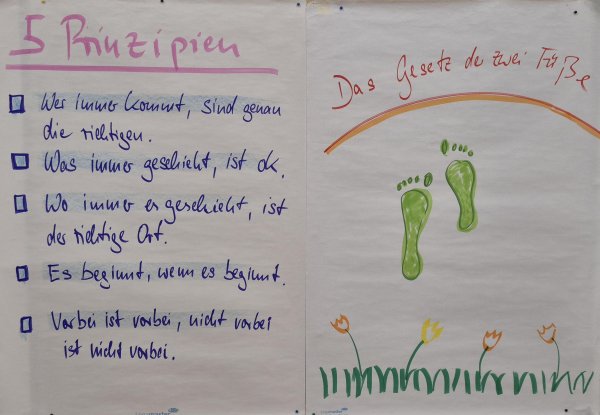 5 Prinzipien
Wer immer kommt, sind genau
die richtigen.
Was immer geschieht, ist ok.
Wo immer es geschieht, ist
der richtige Ort.
Es beginnt, wenn es beginnt.
Vorbei ist vorbei, nicht vorbei
ist nicht vorbei.
Das Gesetz der zwei Füße